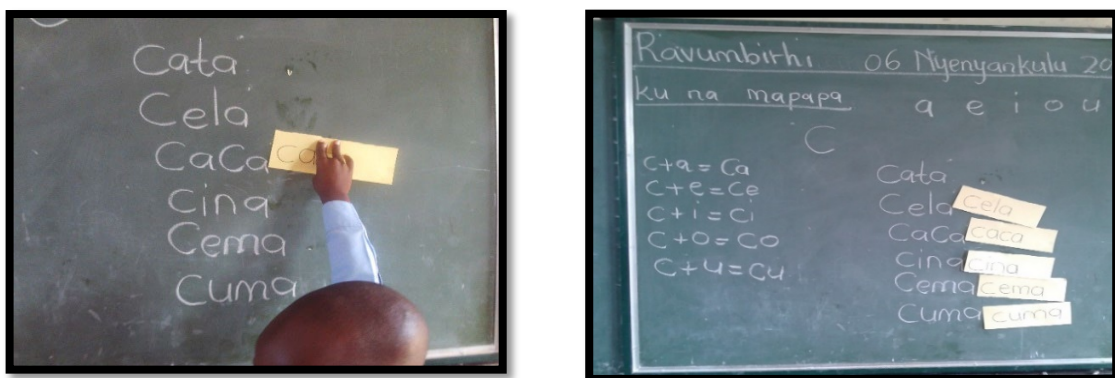 Cata
Cela
CaCa
Cina
Cema
Cuma
Ravumbirhi 06 Nyenyankulu 20
ku na mapapa a e i o u
C
C+a=Ca
C+e=Ce
C+i=Ci
C+o=Co
C+u=Cu
Cata
Cela Cela
CaCa caca
Cina cina
Cema cema
Cuma cuma